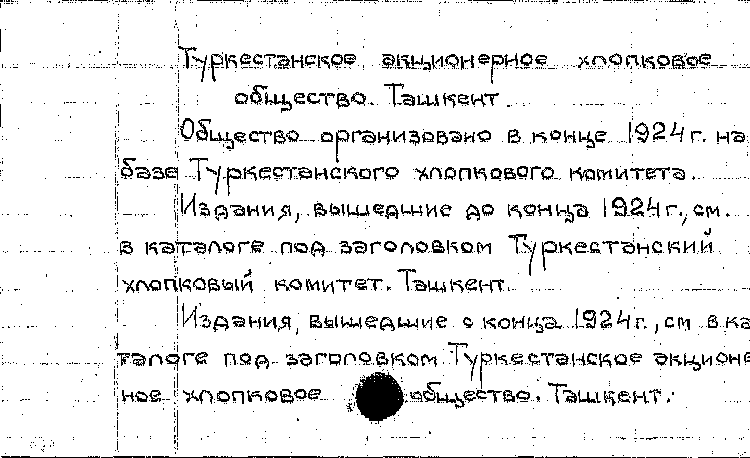 Туркестанское акционерное хлопковое
общество. Ташкент.
Общество организовано в конце 1924 г. на
базе Туркестанского хлопкового комитета.
Издания, вышедшие до конца 1924 г., см.
в каталоге под заголовком Туркестанский
хлопковый комитет. Ташкент.
Издания, вышедшие с конца 1924 г., см в ка
талоге под заголовком Туркестанское акционе
ное хлопковое общество. Ташкент.